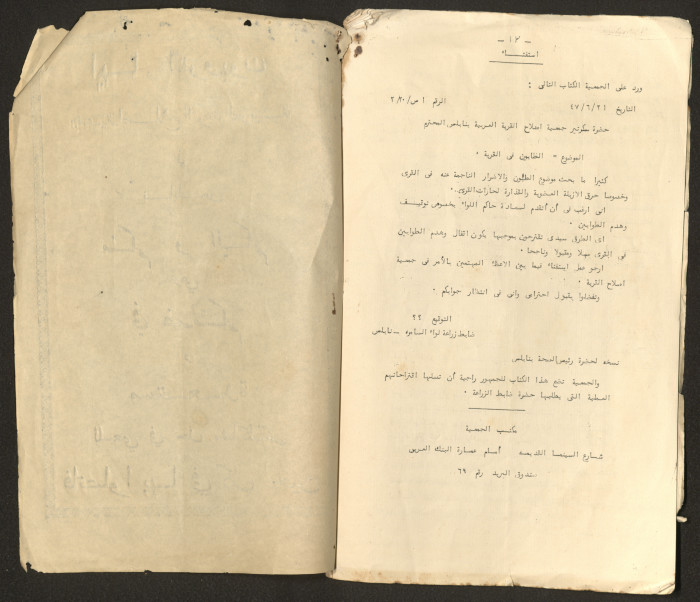 - ١٢ -
استفتـــاء
ورد على الجمعية الكتاب التالى :
التاريخ ٤٧/٦/٢١ الرقم ١ ص/٢,٢٠
حضرة سكرتير جمعية اصلاح القرية العربية بنابلس المحترم
الموضوع - الطوابين فى القرية .
كثيرا ما بحث موضوع الطابون والاضرار الناجمة عنه فى القرى
وخصوصا حرق الازبلة العضوية والقذارة لحارات القرى .
انى ارغب فى أن أتقدم لسعادة حاكم اللواء بخصوص توقيـــف
وهدم الطوابين .
اى الطرق سيدى تقترحون بموجبها يكون اقفال وهدم الطوابين
فى القرى سهلا وناجحا .
ارجو عمل استفتاء فيما بين الاعضاء المهتمين بالأمر فى جمعية
اصلاح القرية .
وتفضلوا بقبول احترامى وانى فى انتظار جوابكم .
التوقيع ٢٢
ضابط زراعة لواء السامره - نابلس
نسخه لحضرة رئيس الصحة بنابلس
والجمعية تضع هذا الكتاب للجمهور راجية أن تصلها اقتراحاتهم
العملية التى يطلبها حضرة ضابط الزراعة .
مكتب الجمعية
شـارع السينمـا القديمـه أمـام عمـارة البنك العربى
صندوق البريد رقم ٦٩